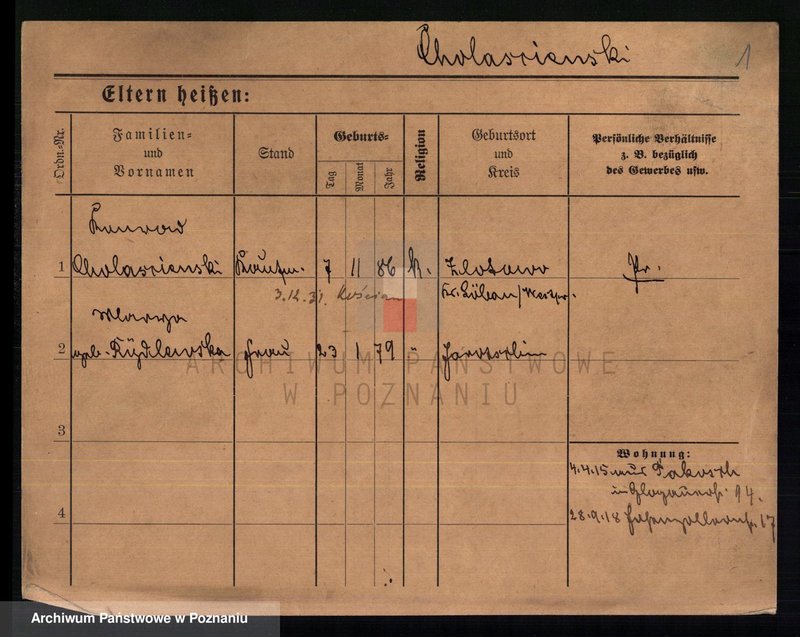 Cholascienski 1
Eltern heißen:
Ordn.-Nr.
Familien-
und
Vornamen
Stand
Geburts-
Tag
Monat
Jahr
Religion
Geburtsort
und
Kreis
Persönliche Verhältnisse
z. B. bezüglich
des Gewerbes usw.
Konrad
1 Cholascienski Kaufm. 7 11 86 k. Zlotowo Pr.
Kr. Löbau/Westpr.
3.12.31. Kościan
Marya
2 geb. Frau 23 1 79 " Jarotschin
3
Wohnung:
4.4.15 aus Pakosch
in Glogauerstr. 94.
4
28.9.18 Hohenzollernstr. 17
ARCHIWUM PAŃSTWOWE
W POZNANIU
Archiwum Państwowe w Poznaniu